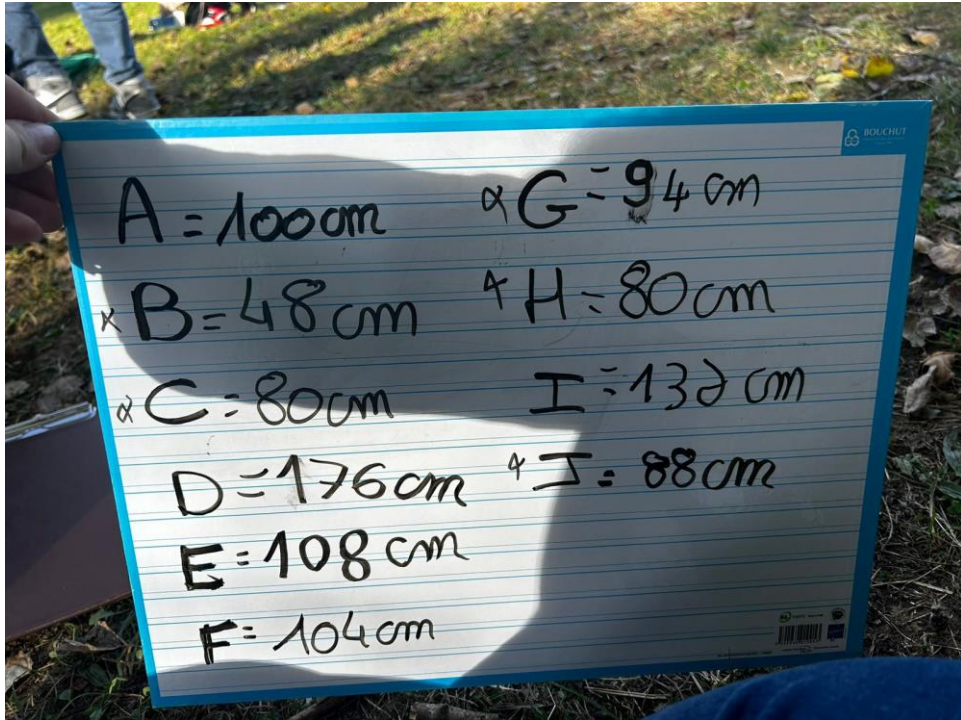 BOUCHUT
A = 100 cm
× B = 48 cm
× C = 80 cm
D = 176 cm
E = 108 cm
F = 104 cm
× G = 94 cm
× H = 80 cm
I = 132 cm
× J = 88 cm